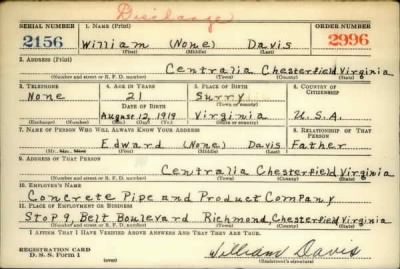 Discharge
SERIAL NUMBER 1. NAME (Print) ORDER NUMBER
2156 William (None) Davis 2996
(First) (Middle) (Last)
2. ADDRESS (Print)
Centralia Chesterfield Virginia
(Number and street or R. F. D. number) (Town) (County) (State)
3. TELEPHONE 4. AGE IN YEARS 5. PLACE OF BIRTH 6. COUNTRY OF CITIZENSHIP
None 21 Surry
DATE OF BIRTH (Town or county)
August 12, 1919 Virginia U.S.A.
(Exchange) (Number) (Mo.) (Day) (Yr.) (State or country)
7. NAME OF PERSON WHO WILL ALWAYS KNOW YOUR ADDRESS 8. RELATIONSHIP OF THAT PERSON
Edward (None) Davis Father
(Mr., Mrs., Miss) (First) (Middle) (Last)
9. ADDRESS OF THAT PERSON
Centralia Chesterfield Virginia
(Number and street or R. F. D. number) (Town) (County) (State)
10. EMPLOYER'S NAME
Concrete Pipe and Product Company
11. PLACE OF EMPLOYMENT OR BUSINESS
Stop 9, Belt Boulevard Richmond, Chesterfield Virginia
(Number and street or R. F. D. number) (Town) (County) (State)
I AFFIRM THAT I HAVE VERIFIED ABOVE ANSWERS AND THAT THEY ARE TRUE.
REGISTRATION CARD
D. S. S. Form 1 (over) William Davis
(Registrant's signature)